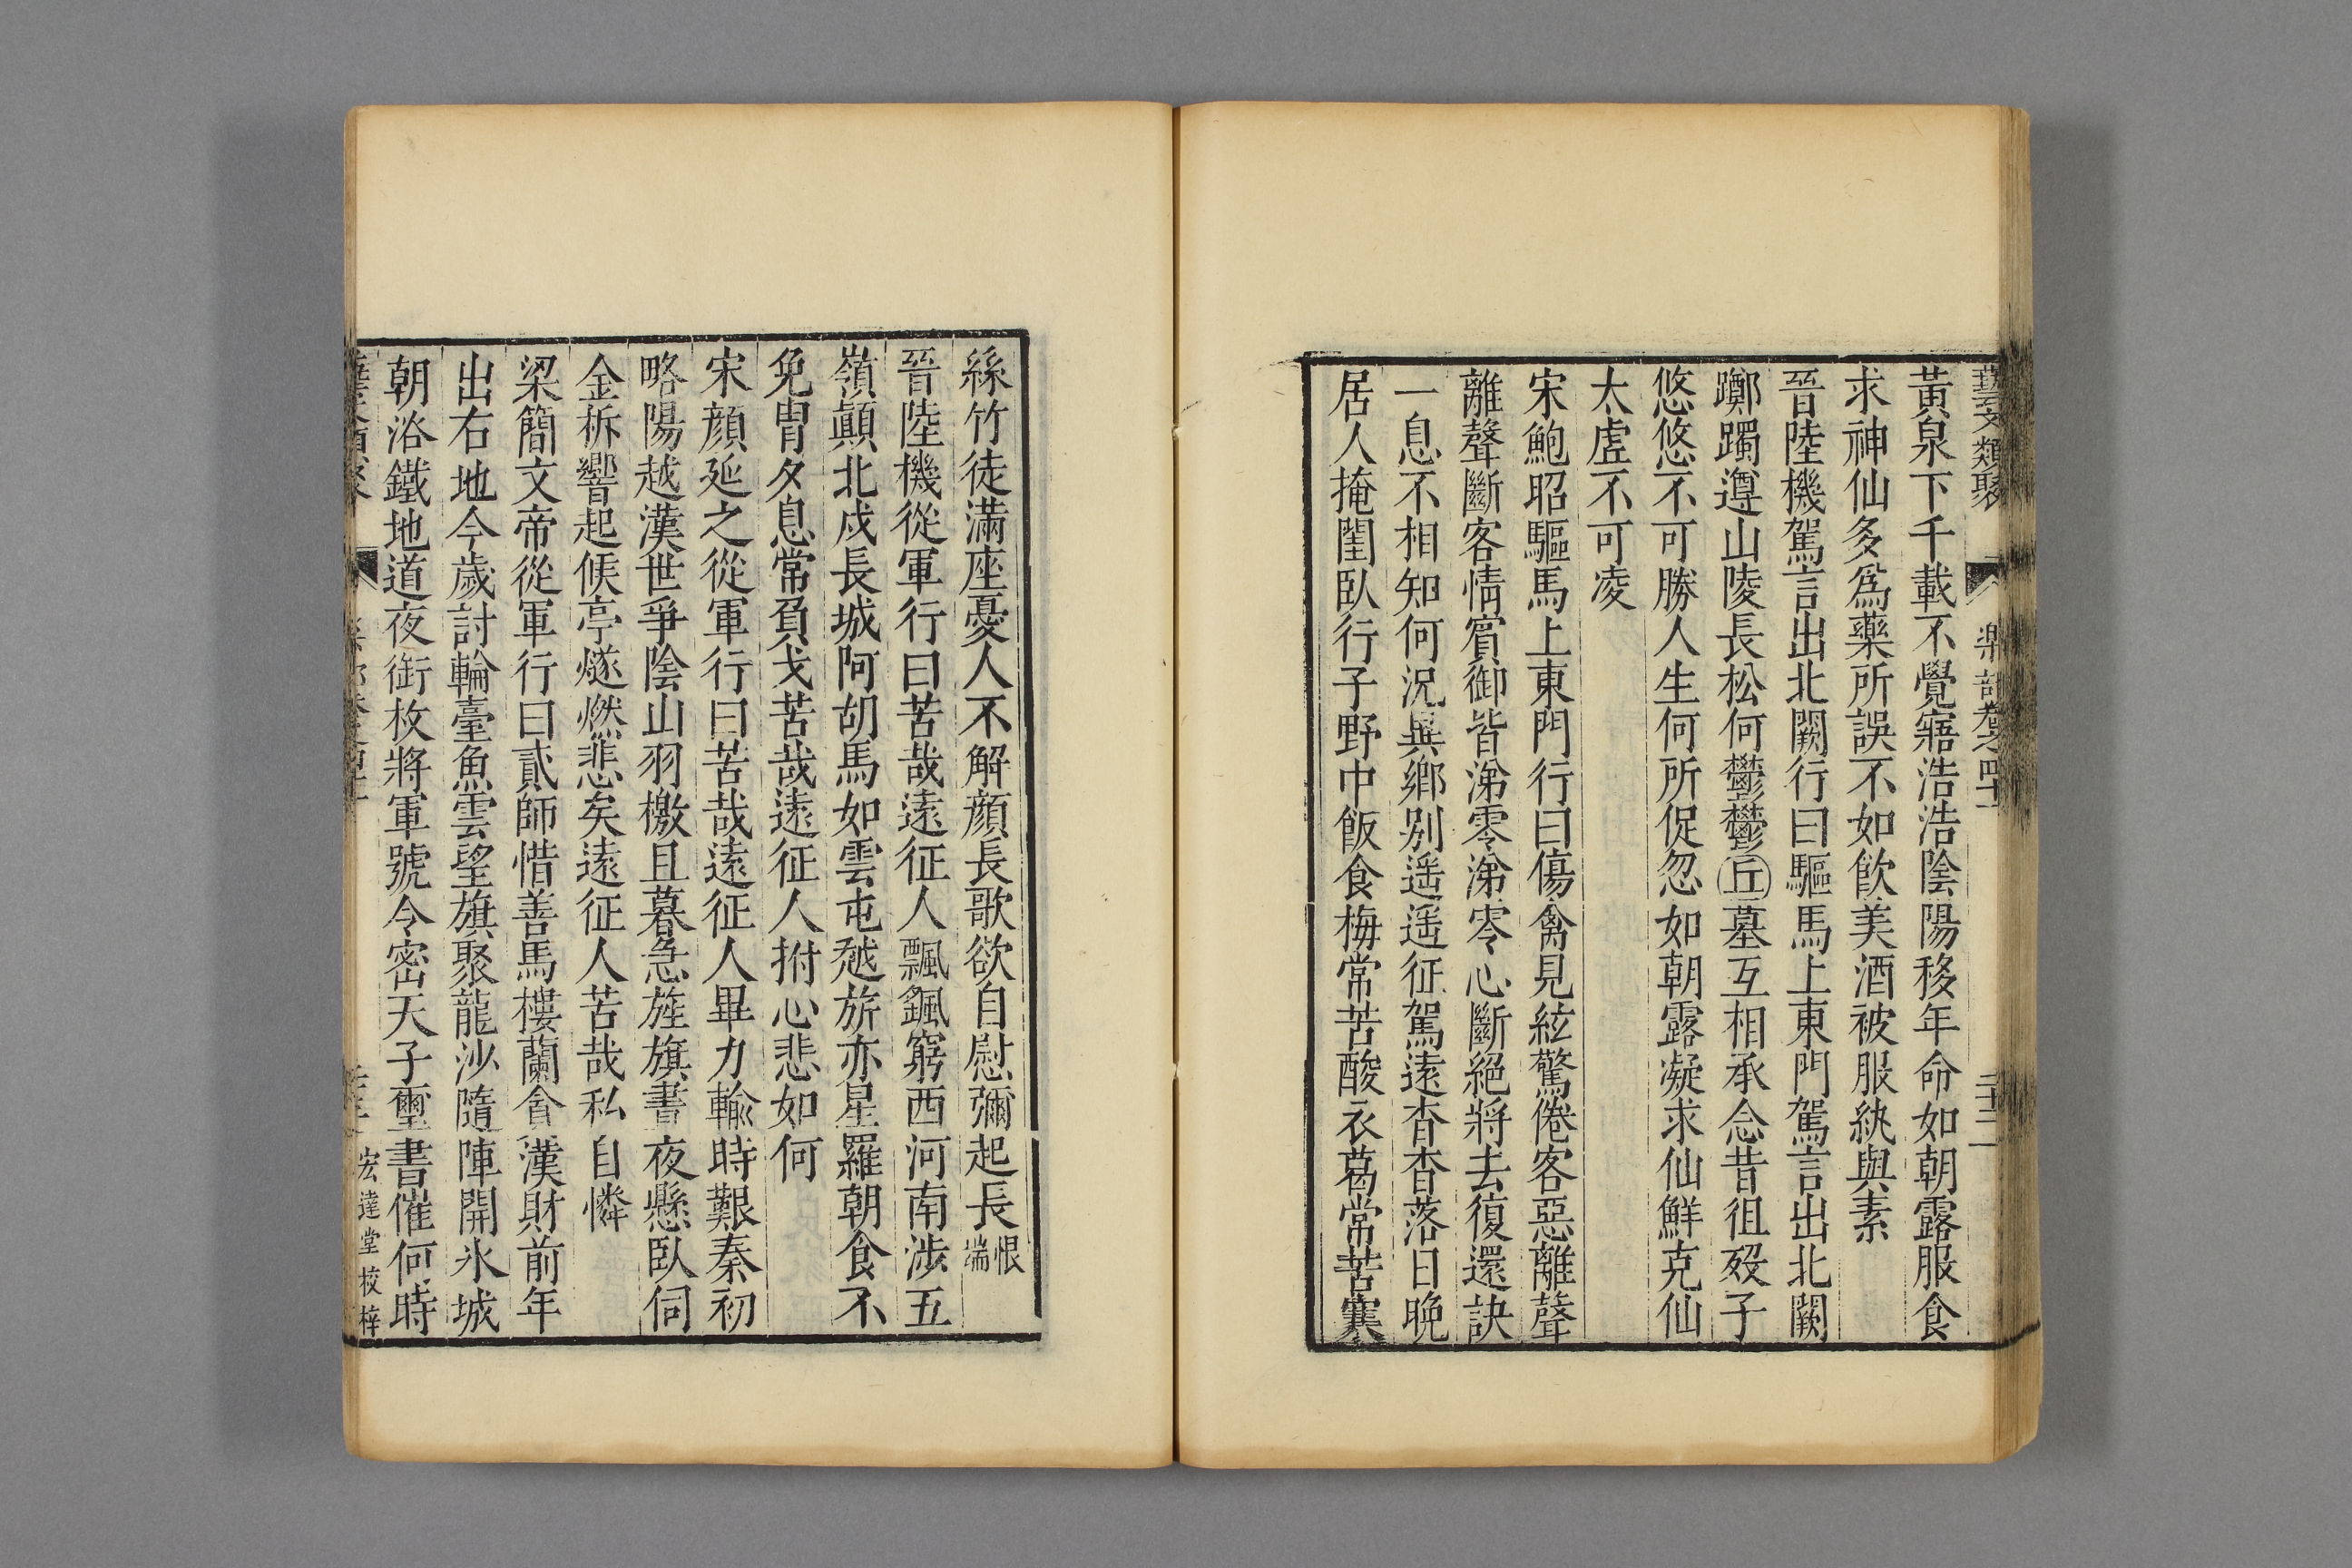 藝文類聚 樂部卷之四十一 二十二
黃泉下千載不覺寤浩浩陰陽移年命如朝露服食
求神仙多爲藥所誤不如飲美酒被服紈與素
晉陸機駕言出北闕行曰驅馬上東門駕言出北闕
躑躅遵山陵長松何鬱鬱丘墓互相承念昔徂歿子
悠悠不可勝人生何所促忽如朝露凝求仙鮮克仙
太虛不可凌
宋鮑昭驅馬上東門行曰傷禽見絃驚倦客惡離聲
離聲斷客情賓御皆涕零涕零心斷絕將去復還訣
一息不相知何況異鄉別遥遥征駕遠杳杳落日晚
居人掩閨臥行子野中飯食梅常苦酸衣葛常苦寒
絲竹徒滿座憂人不解顔長歌欲自慰彌起長恨端
晉陸機從軍行曰苦哉遠征人飄飄窮西河南涉五
嶺顛北戍長城阿胡馬如雲屯越旂亦星羅朝食不
免胄夕息常負戈苦哉遠征人拊心悲如何
宋顔延之從軍行曰苦哉遠征人畢力輸時艱秦初
略陽越漢世爭陰山羽檄且暮急旌旗書夜懸臥伺
金柝響起候亭燧燃悲矣遠征人苦哉私自憐
梁簡文帝從軍行曰貳師惜善馬樓蘭貪漢財前年
出右地今歲討輪臺魚雲望旗聚龍沙隨陣開氷城
朝浴鐵地道夜銜枚將軍號令密天子璽書催何時
宏達堂校梓